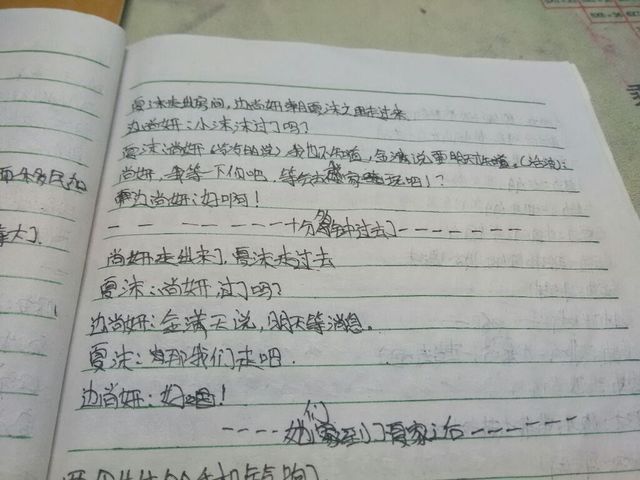 夏沫走出房间,边尚妍朝夏沫走过来
边尚妍:小沫沫过了吗?
夏沫:尚妍 我也不知道,金满说要明天知道。
尚妍,我等一下你吧,等会去我家玩吧!?
边尚妍:好啊!
十分钟过去了
尚妍走出来了,夏沫走过去
夏沫:尚妍,过了吗?
边尚妍:金满天说,明天等消息。
夏沫:那我们走吧.
边尚妍:好!
她们到了夏家之后